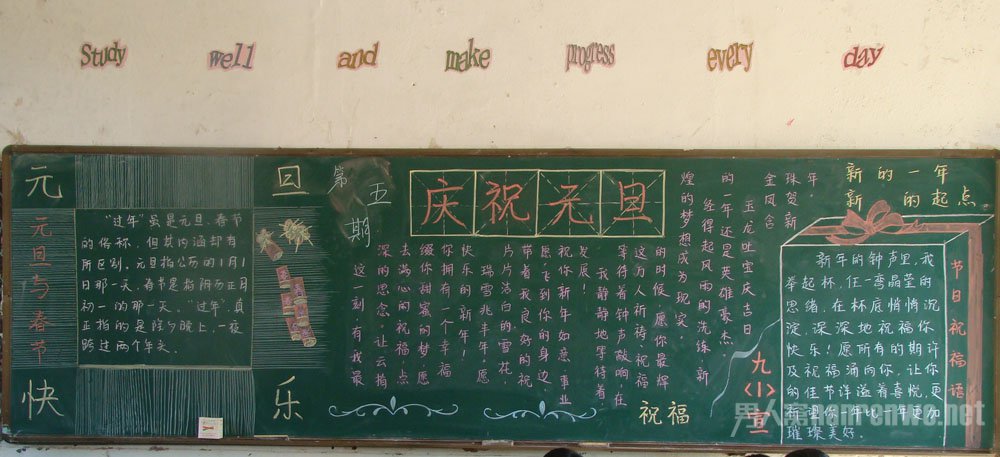 Study well and make progress every day
元旦
快乐
元旦与春节
“过年”虽是元旦、春节
的俗称，但其内涵却有
所区别。元旦指公历的1月1
日那一天。春节是指阴历正月
初一的那一天。“过年”，真
正指的是除夕晚上，一夜
跨过两个年头。
第五期
庆祝元旦
这一刻，有我最
深的思念，让云捎
去满心的祝福，点
缀你甜蜜的梦，愿
你拥有一个幸福
快乐的新年！
瑞雪兆丰年，愿
片片洁白的雪花，
带着我良好的祝
愿飞到你的身边，
祝你新年如意，事业
发展！
我静静地等待着
等待着钟声敲响，在
这为人祈祷、祝福
的时候，愿你最辉
煌的梦想成为现实
经得起风雨的洗练，新
的一年还是英雄豪杰。
玉龙吐宝庆吉日
金凤含
珠贺新
年。
祝福
九〈1〉宣
新的一年
新的起点
新年的钟声里，我
举起杯，任一弯晶莹的
思绪，在杯底悄悄沉
淀，深深地祝福你
快乐！愿所有的期许
及祝福涌向你，让你
的佳节洋溢着喜悦，更
祈望你一年比一年更加
璀璨美好。
节日祝福语
男人窝nanrenwo.net